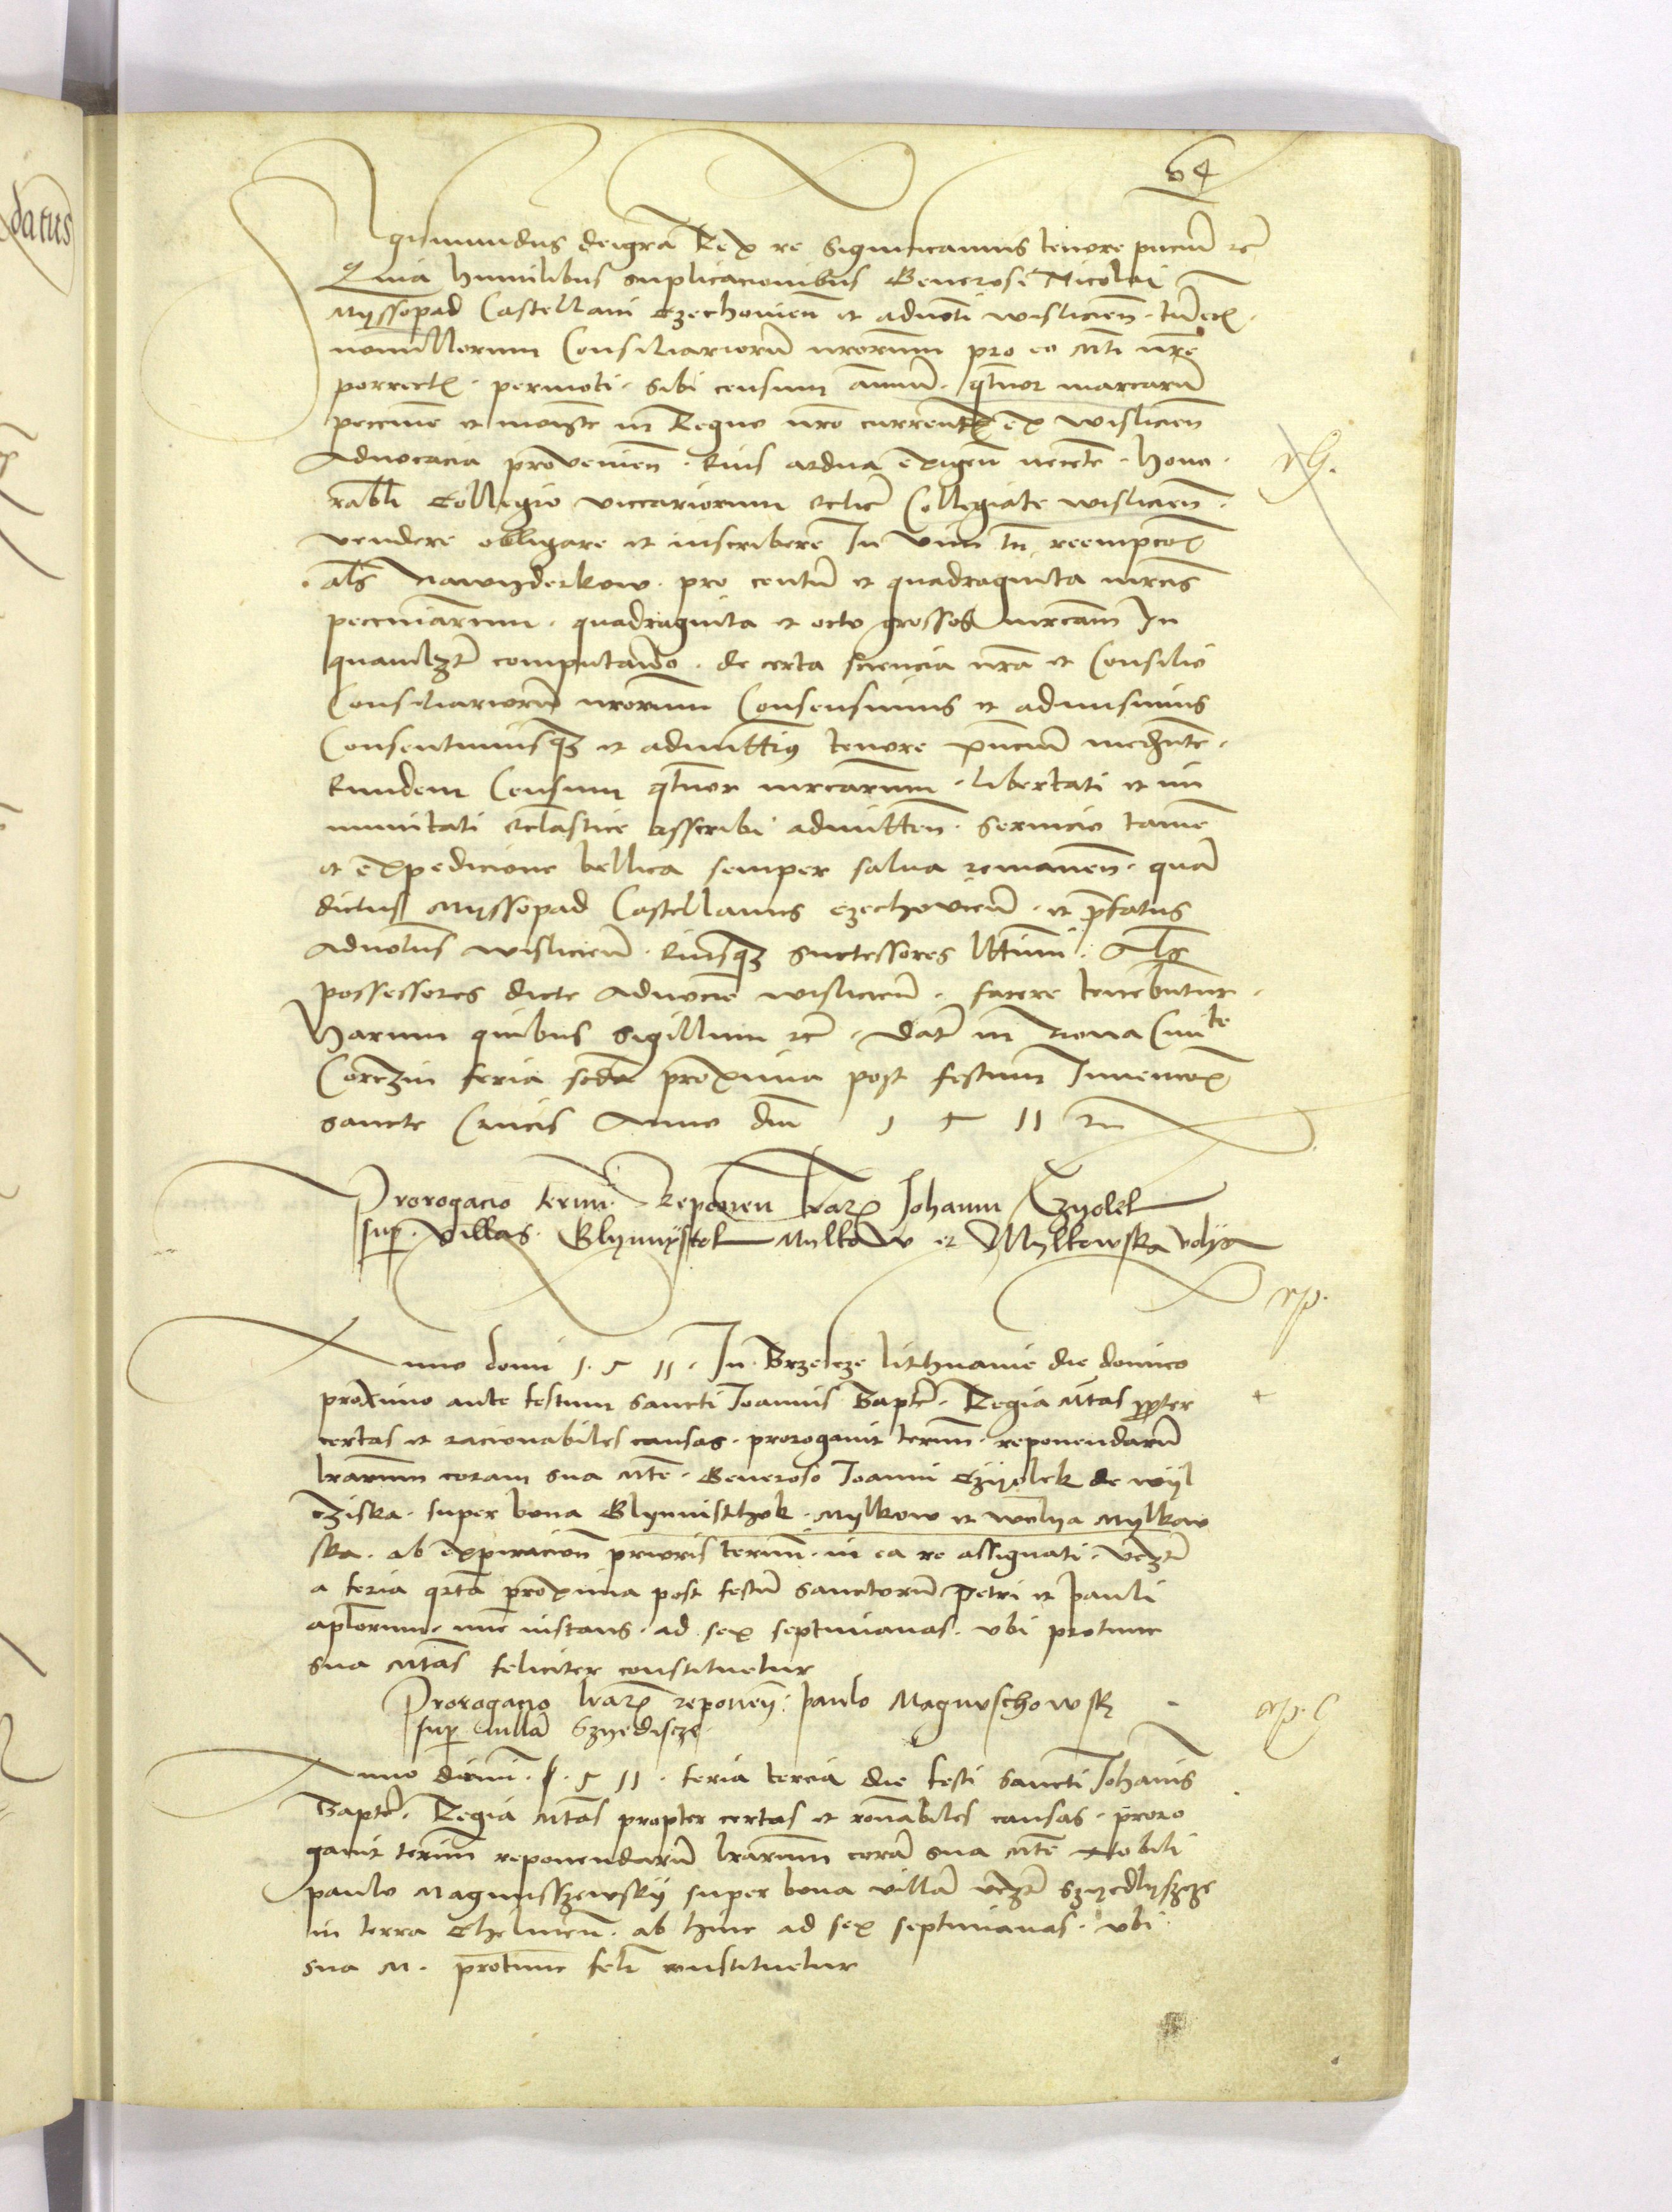 datus
64
Sigismundus dei gra Rex re Significamus tenore pncium etc
Quia humilibus suplicacionibus Generosi Nicolai
Myssopad Castellani Czechovien et advocati wislicien
nonnullorum Consiliariorum nrorum pro eo Mti nre
porrectis permoti sibi censum annuum quatuor marcarum
pecunie et monete in Regno nro currentis ex wislicien
Advocacia provenien Eius ardua exigen necte Hono
rabli Collegio viccariorum ecclie Collegiate wislicien
vendere obligare et inscribere In vim tn reempcois
als nawyderkow pro centum et quadraginta mrcis
pecuniarum quadraginta et octo grossos mrcam In
quamlzt computando de certa sciencia nra et Consilio
Consiliariorum nrorum Consensimus et admisimus
Consentimusqz et admittims tenore pncium medznte
Eundem Censum qtuor mrcarum libertati et im
munitati ecclastice asscribi admitten servicio tame
et expedicione bellica semper salva remanen qua
dictus Myssopad Castellanus czechovien et prefatus
Advotus wislicien Eiusqz successores lttimi Als
possessores dicte Advocie wislicien facere tenebuntur
Harum quibus sigillum etc Dat in Nova Civite
Corczin feria scda proxima post festum Invencois
sancte Crucis Anno dni 1511
Prorogacio termi Reponen lrarum Johanni Czyolek
sup villas Glynnystok Mylkow et Mylkowska volya
rp.
Anno domi 1.5 11. In Brzescze lithuanie die dominco
proximo ante festum sancti Joannis Bapte Regia Mtas propter
certas et racionabiles causas prorogavit termin reponendarum
lrarum coram sua Mte Generoso Joanni Czyolek de wyl
cziska super bona Glynnisthok Mylkow et wolya Mylkow
ska ab expiracion prioris termi in ea re assignati vdzt
a feria qrta proxima post festum sanctorum Petri et Pauli
aplorum nunc instans ad sex septimanas ubi protunc
sua Mtas feliciter constituetur
Prorogacio lrarum reponen Paulo Magnuschowsky
sup villa Szyedliscze
Anno domi 1.5 11. feria tercia die festi Sancti Johannis
Bapte Regia Mtas propter certas et ronabiles causas proro
gavit termin reponendarum lrarum cora sua Mte Nobili
paulo Magnusszewsky super bona villa vdzt Szyedlyszcze
in terra Chelmen ab hinc ad sex septimanas ubi
sua M. protunc feli constituetur